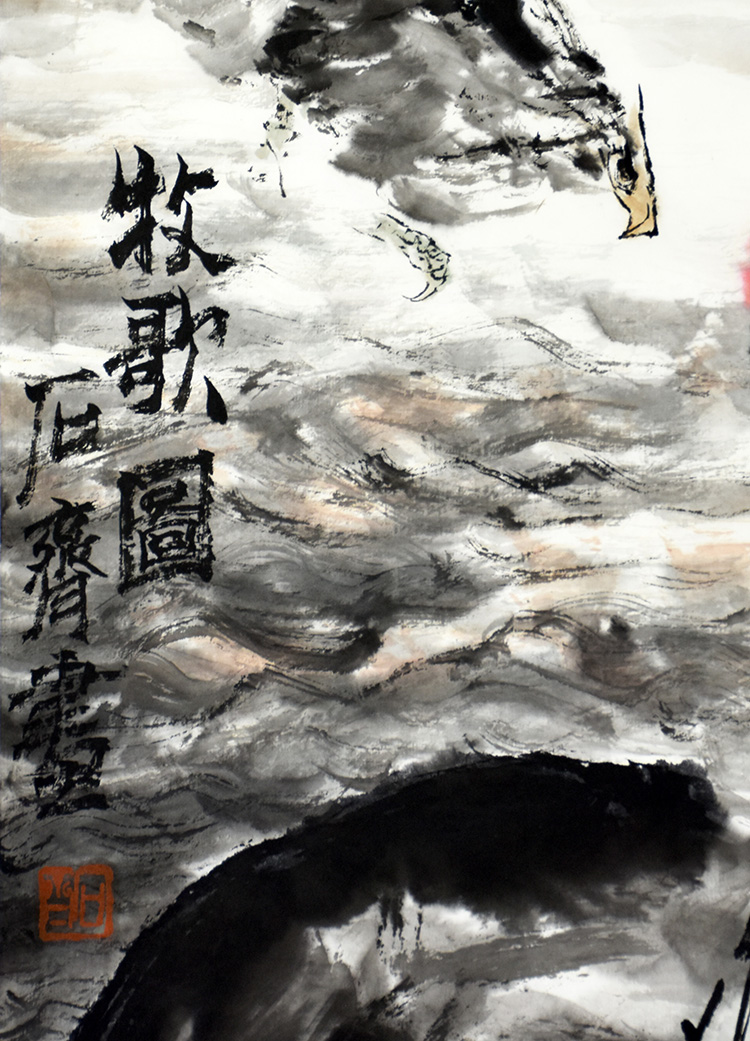 牧歌圖
石齋畫